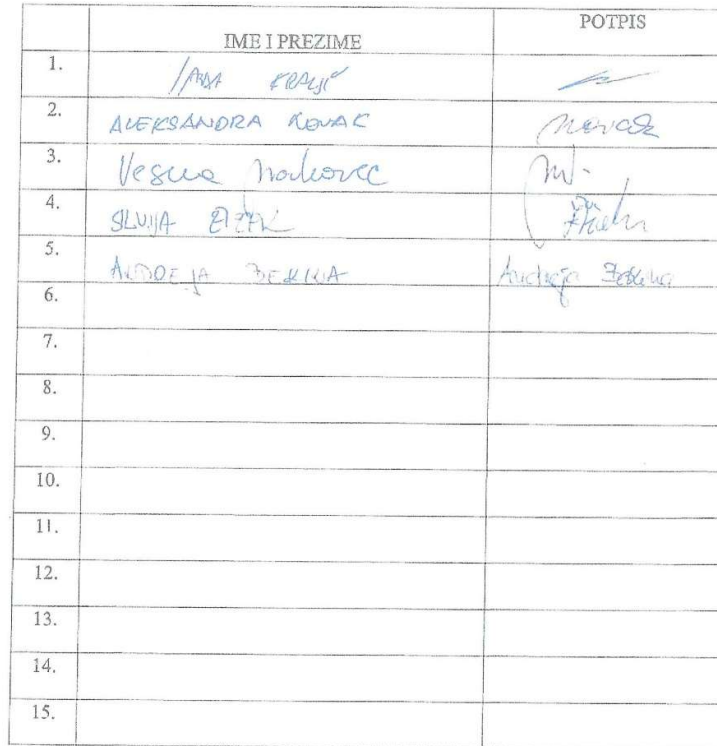 IME I PREZIME POTPIS
1. KRALJIĆ
2. ALEKSANDRA NOVAK Novak
3. Vesna Makovec
4. SILVIJA ŽIŽEK
5. ANDREJA ZEKINA Andreja
6.
7.
8.
9.
10.
11.
12.
13.
14.
15.